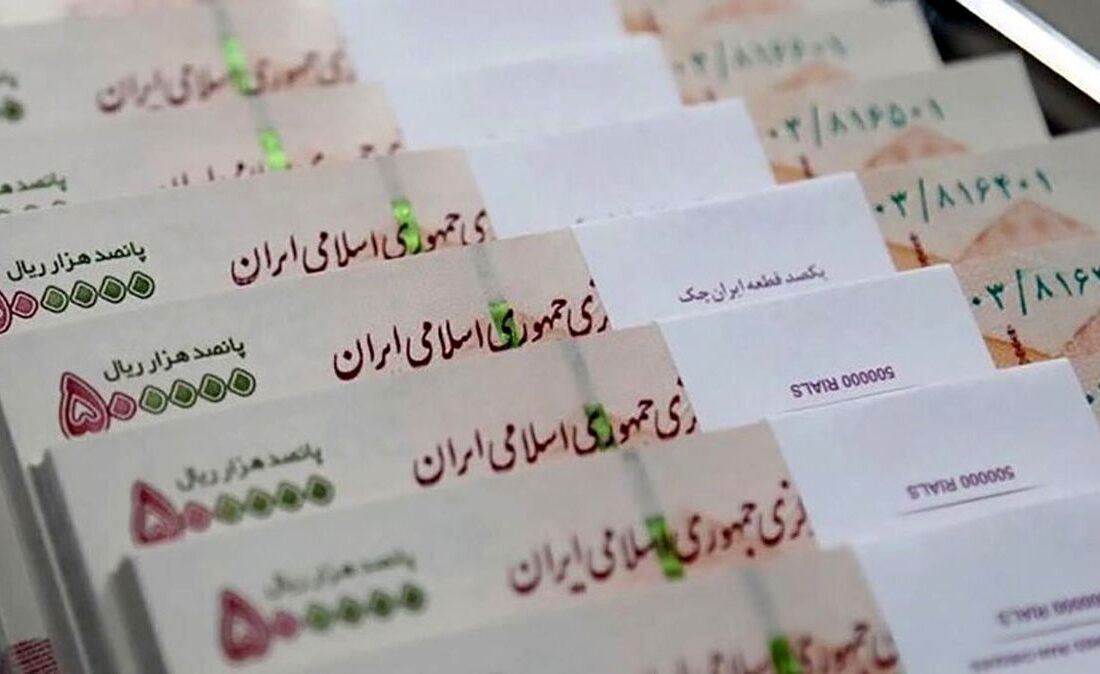 ۰۳/۸۱۶۶۰۱
جمهوری اسلامی ایران
۰۳/۸۱۶۵۰۱
پانصد هزار ریال
۰۳/۸۱۶۴۰۱
پانصد هزار ریال
۵۰۰۰۰۰
جمهوری اسلامی ایران
یکصد قطعه ایران چک
۰۳/۸۱۶
پانصد هزار ریال
۵۰۰۰۰۰
زی جمهوری اسلامی ایران
500000 RIALS
پانصد هزار ریال
۵۰۰۰۰۰
زی جمهوری اسلامی ایران
500000 RIALS
پانصد هزار ریال
۵۰۰۰۰۰
کزی جمهوری اسلامی ایران
500000 RIALS
جمهوری اسلامی